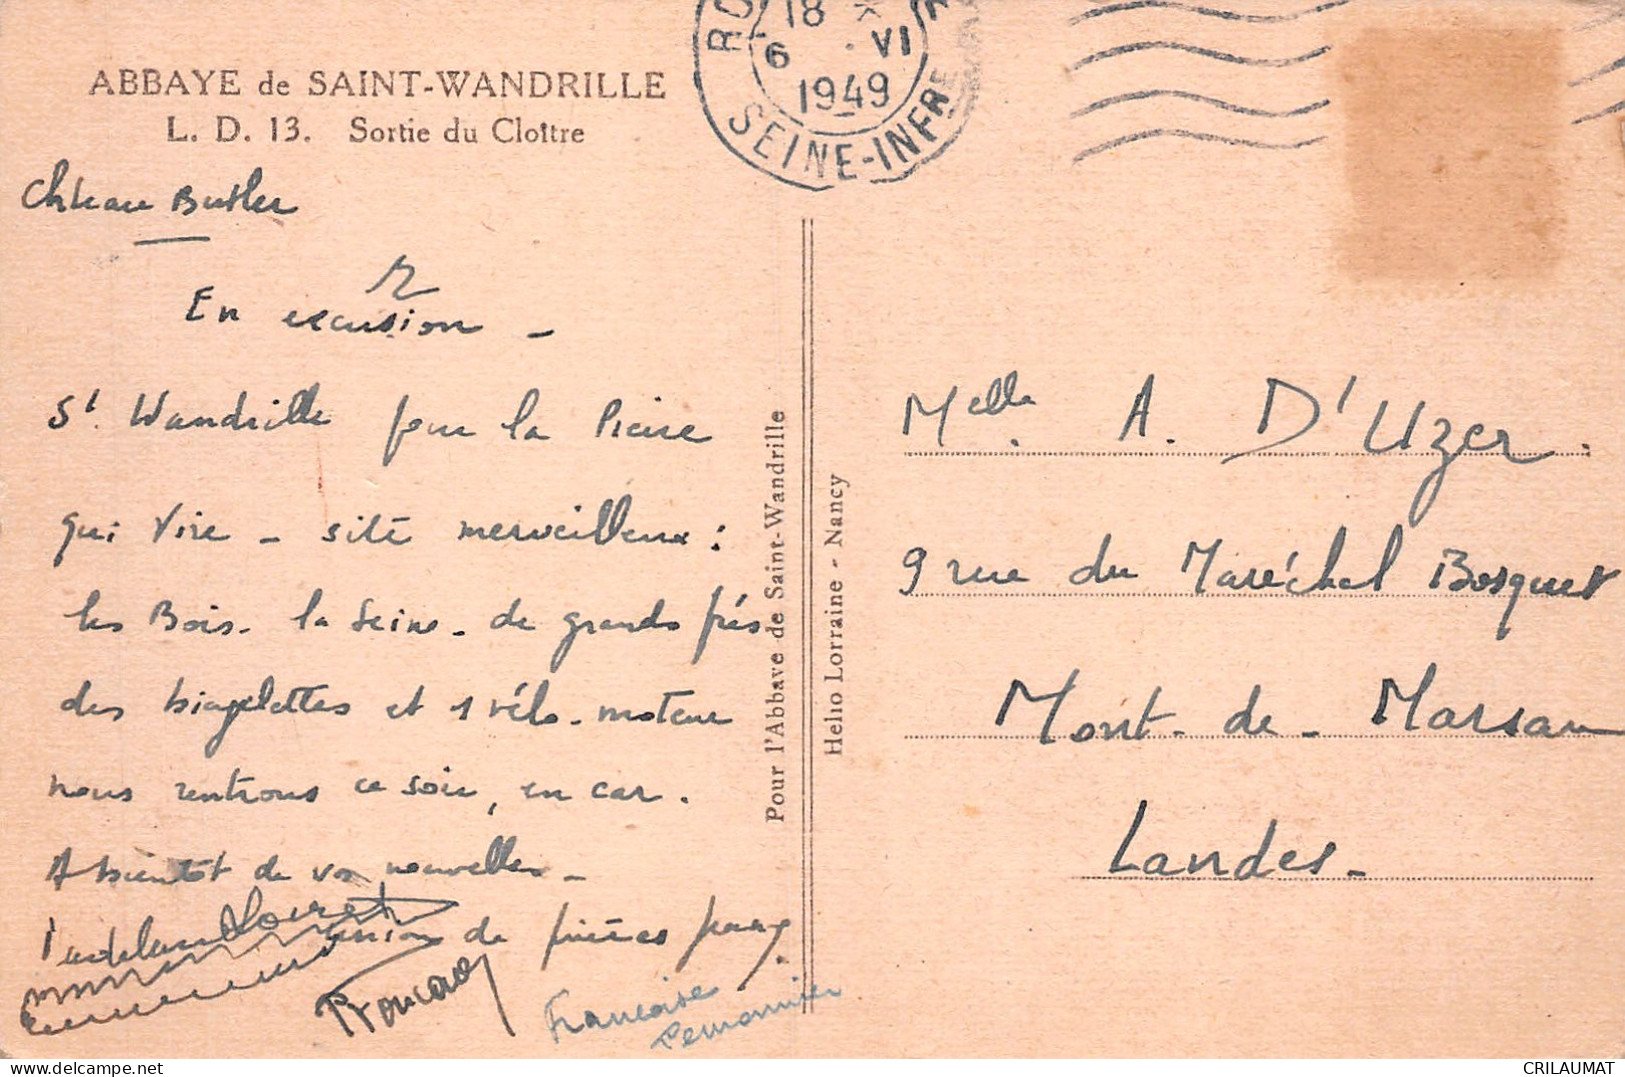 ABBAYE de SAINT-WANDRILLE
L. D. 13. Sortie du Cloître
18
6 VI
1949
SEINE-INFRE
Butler
En excursion -
St Wandrille pour la Pierre
qui Vire - site merveilleux :
les Bois - la Seine - de grands prés
des bicyclettes et 1 vélo-moteur
nous rentrons ce soir, en car.
A bientôt de vos nouvelles -
union de prières
Françoise
Lemonnier
Pour l'Abbaye de Saint-Wandrille
Helio Lorraine - Nancy
Melle A. D'Uzer.
9 rue du Maréchal Bosquet
Mont-de-Marsan
Landes-
delcampe.net
CRILAUMAT